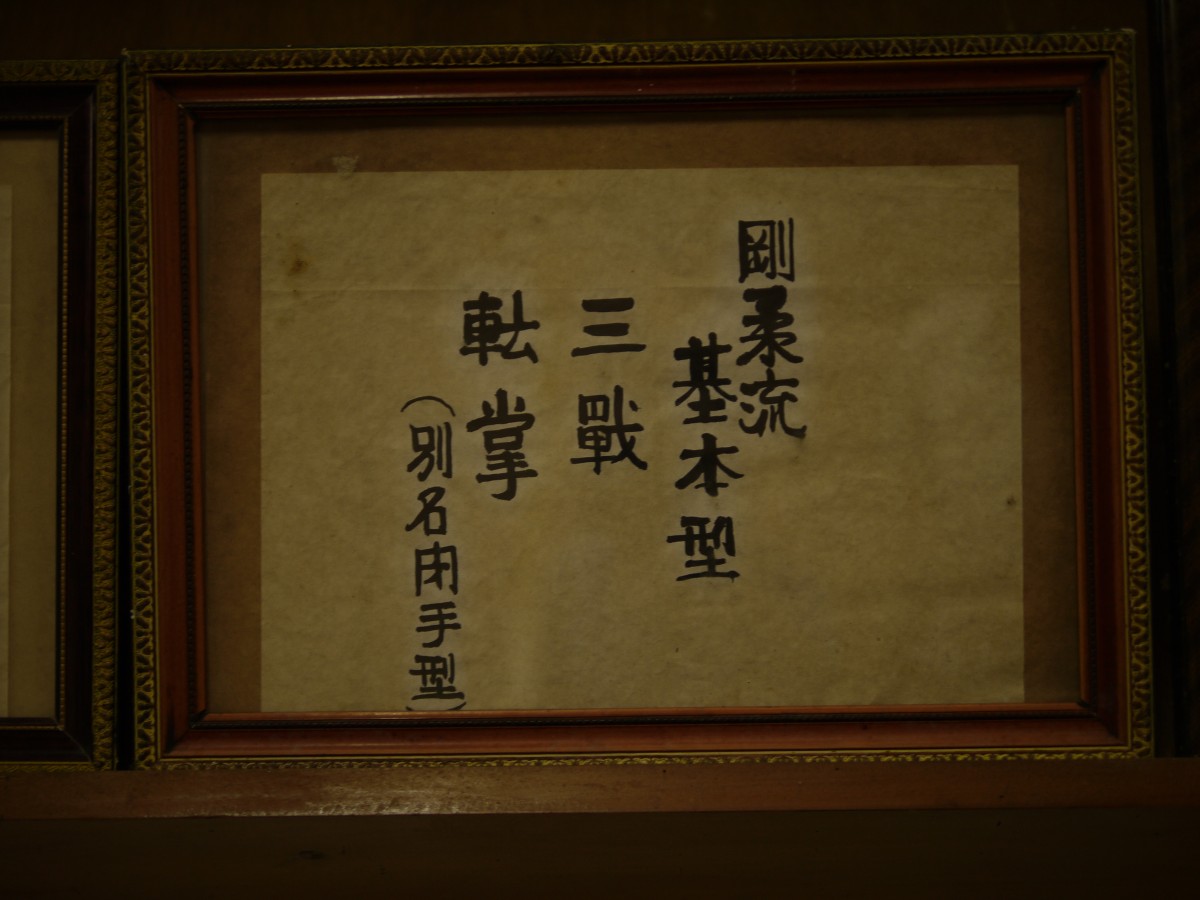 剛柔流
基本型
三戰
転掌
(別名閉手型)